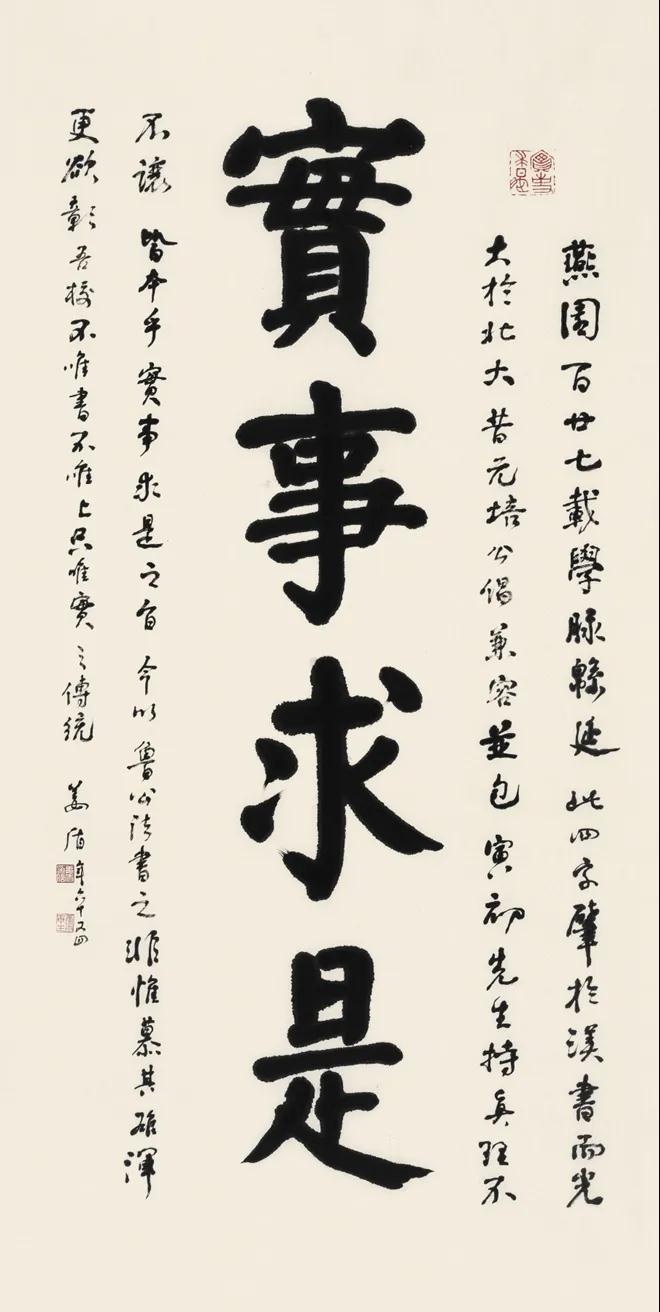 實事求是
燕園百廿七載學脉緜延此四字肇於漢書而光
大於北大昔元培公倡兼容並包寅初先生持真理不
實事求是
不讓皆本乎實事求是之旨今以魯公法書之非惟慕其雄渾
更欲彰吾校不惟書不惟上只惟實之傳統 姜年六十又四